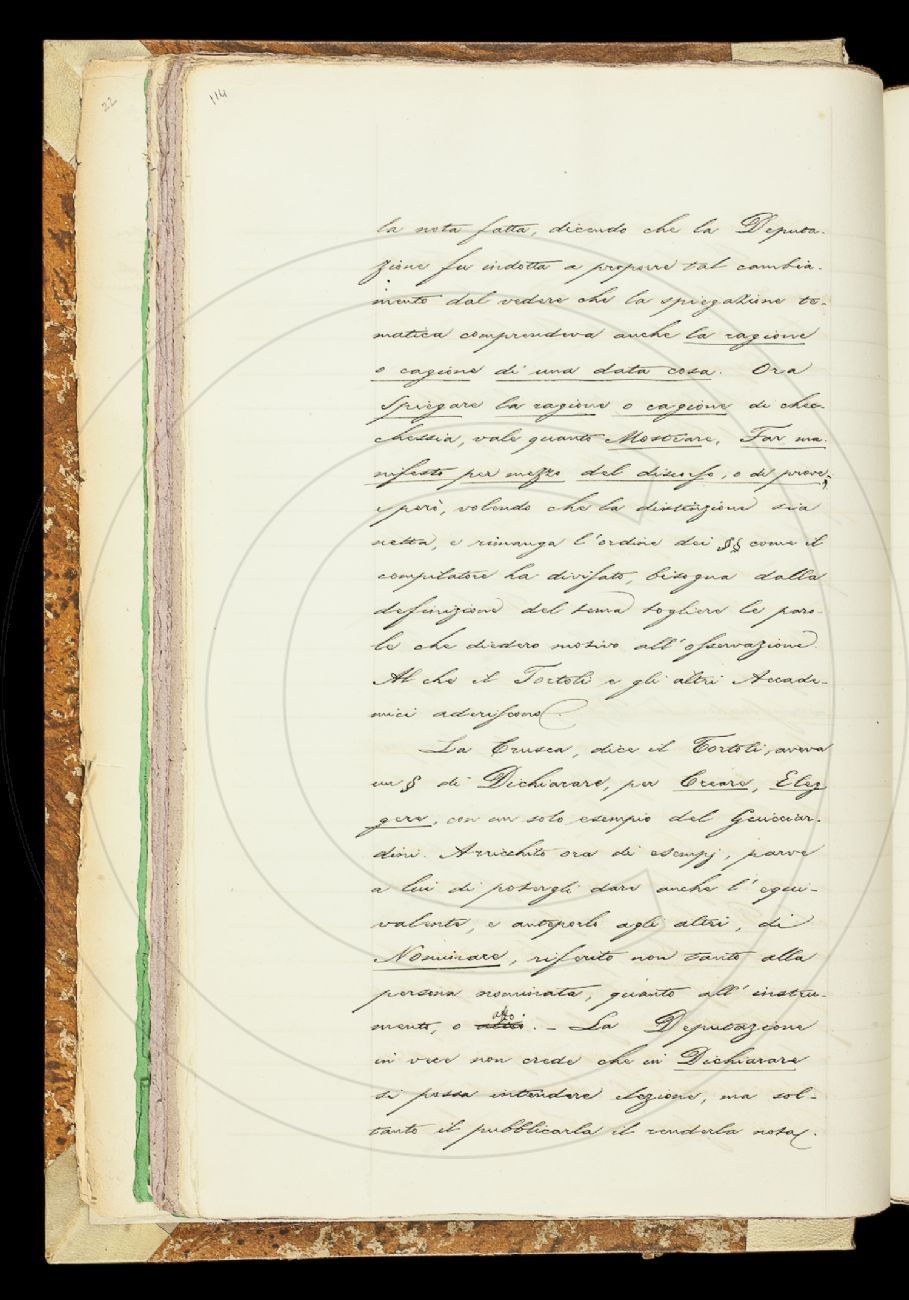 22
114
la nota fatta, dicendo che la Deputa-
zione fu indotta a proporre tal cambia-
mento dal vedere che la spiegazione te-
matica comprendeva anche la ragione
o cagione di una data cosa. Ora
Spiegare la ragione o cagione di chec-
chessia, vale quanto Mostrare, Far ma-
nifesto per mezzo del discorso, o di prove;
e però, volendo che la distinzione sia
netta, e rimanga l'ordine dei §§ come il
compilatore ha divisato, bisogna dalla
definizione del tema togliere le paro-
le che diedero motivo all'osservazione.
Al che il Tortoli e gli altri Accade-
mici aderiscono.
La Crusca, dice il Tortoli, aveva
un § di Dichiarare, per Creare, Eleg
gere, con un solo esempio del Guicciar-
dini. Arricchito ora di esempj, parve
a lui di potergli dare anche l'equi-
valente, e anteporlo agli altri, di
Nominare, riferito non tanto alla
persona nominata, quanto all'instru-
mento, o altri atto. - La Deputazione
in vece non crede che in Dichiarare
si possa intendere elezione, ma sol-
tanto il pubblicarla il renderla nota.